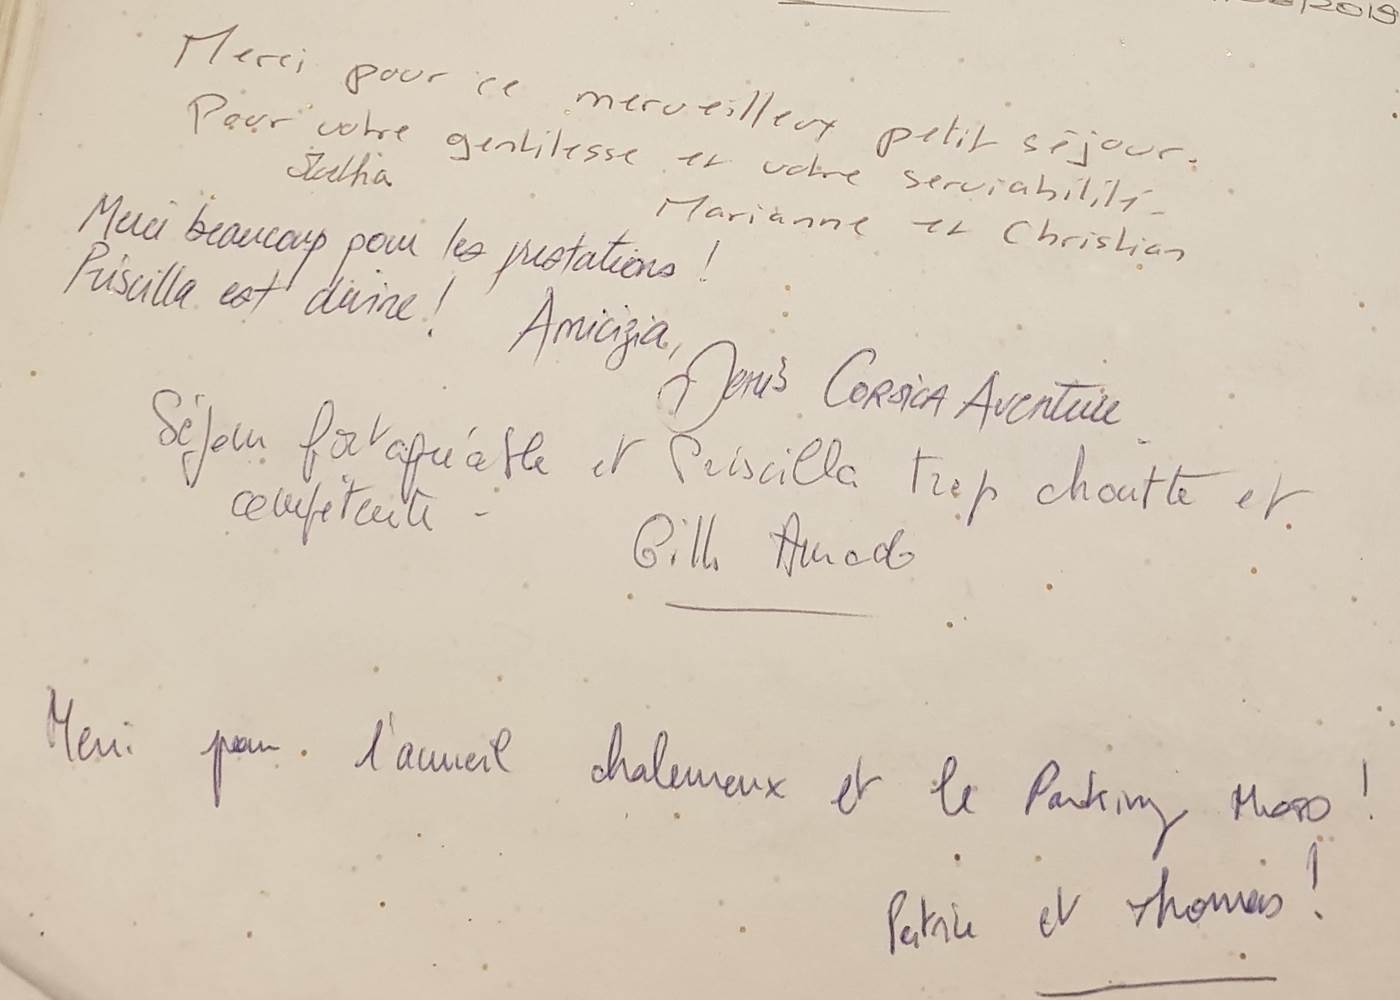 /2019
Merci pour ce merveilleux petit séjour.
Pour votre gentilesse et votre serviabilité -
Marianne et Christian
Merci beaucoup pour les prestations !
Priscilla est divine !
Amicizia,
Denis CORSICA AVENTURE
Séjour fort agréable et Priscilla trop choutte et
compétente -
Gilles
Merci pour l'accueil chaleureux et le Parking moto !
Patrice et Thomas !